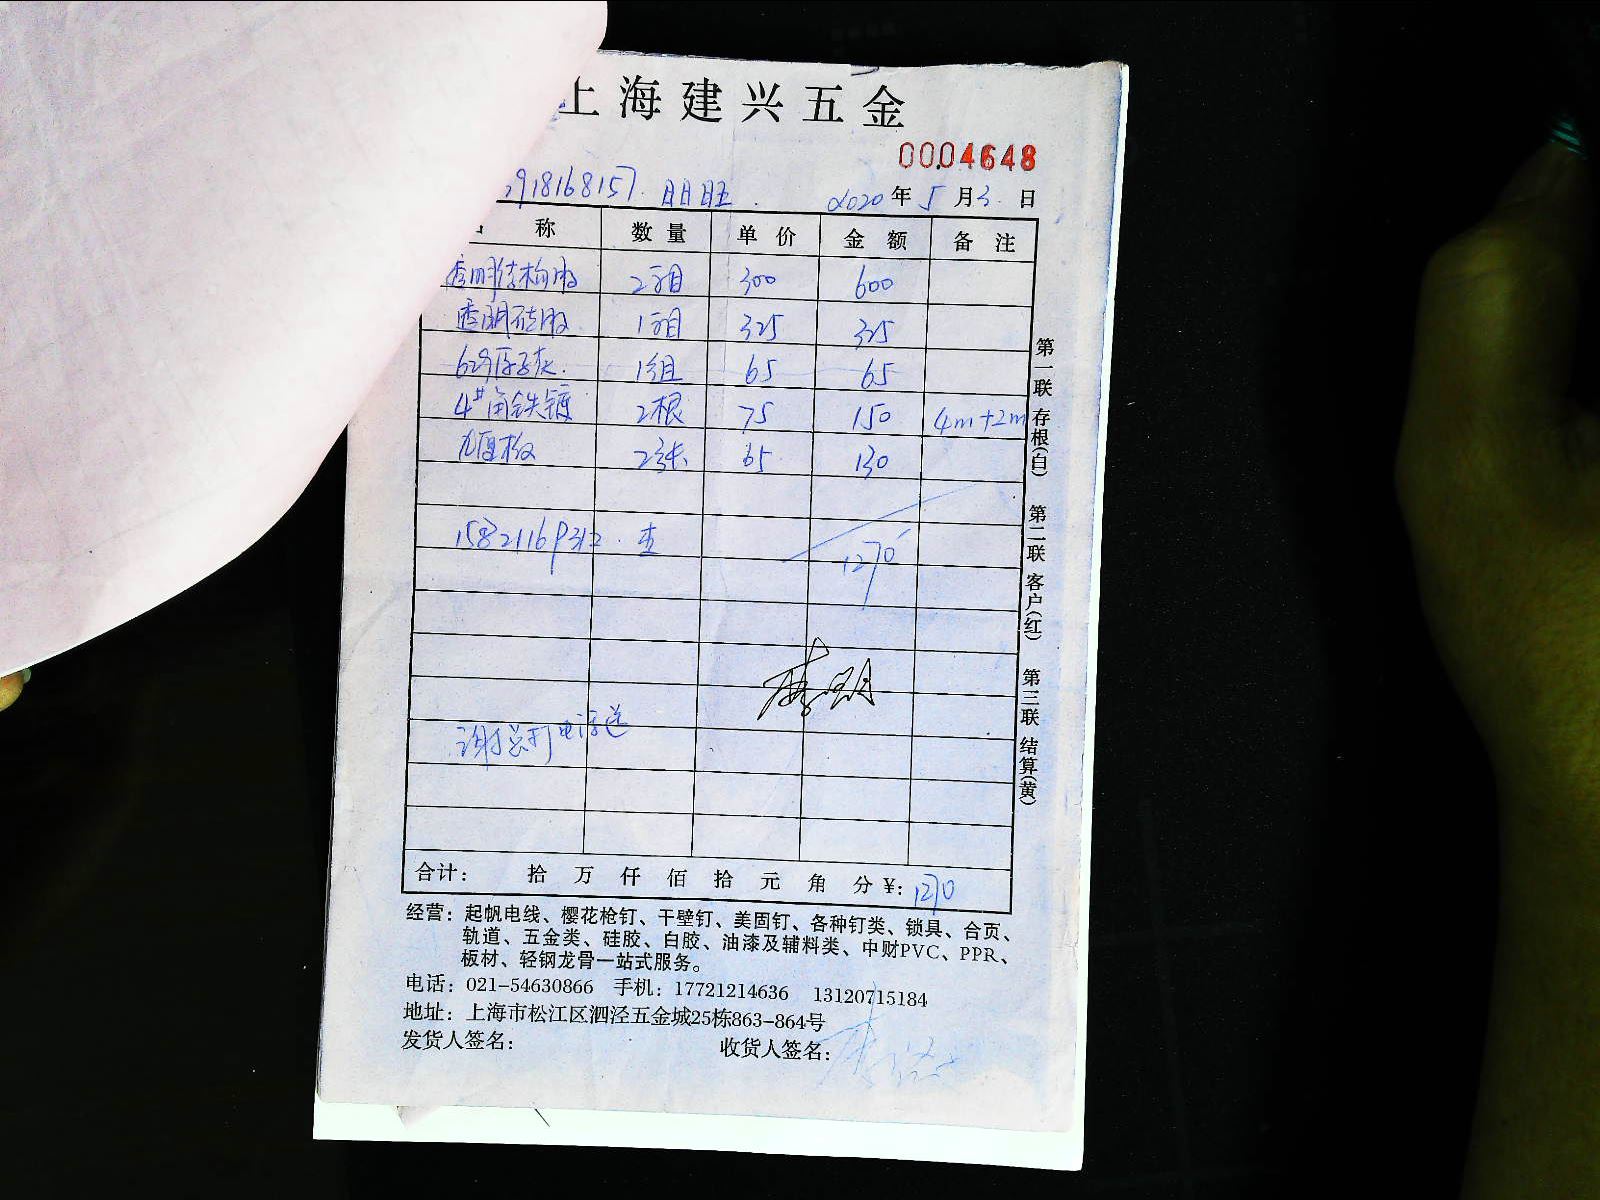 上海建兴五金
0004648
918168157. 明旺. 2020年5月3日
称 数量 单价 金额 备注
透明结构胶 2箱 300 600
透明硅胶 1箱 325 325
629原子灰. 1组 65 65
4#角铁镀 2根 75 150 4m+2m
九厘板 2张 65 130
158211693 查
1270
谢总打电话送
合计: 拾 万 仟 佰 拾 元 角 分 ¥: 1270
经营: 起帆电线、樱花枪钉、干壁钉、美固钉、各种钉类、锁具、合页、
轨道、五金类、硅胶、白胶、油漆及辅料类、中财PVC、PPR、
板材、轻钢龙骨一站式服务。
电话: 021-54630866 手机: 17721214636 13120715184
地址: 上海市松江区泗泾五金城25栋863-864号
发货人签名: 收货人签名:
第一联 存根(白) 第二联 客户(红) 第三联 结算(黄)